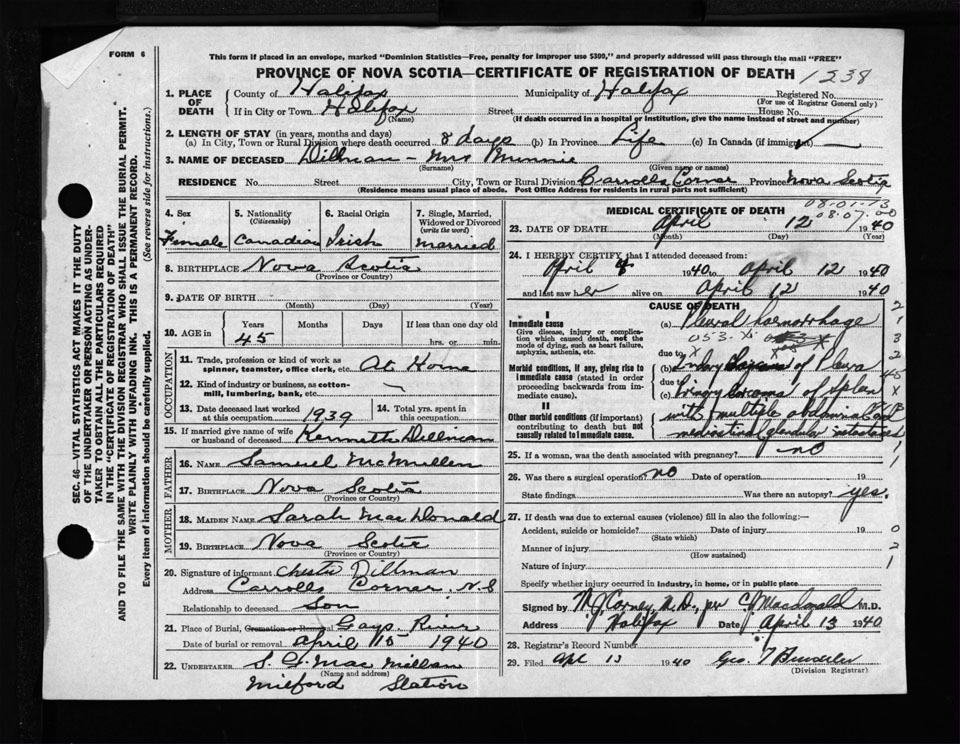 FORM 6
This form if placed in an envelope, marked "Dominion Statistics—Free, penalty for improper use $300," and properly addressed will pass through the mail "FREE"
PROVINCE OF NOVA SCOTIA—CERTIFICATE OF REGISTRATION OF DEATH 1238
SEC. 46—VITAL STATISTICS ACT MAKES IT THE DUTY
OF THE UNDERTAKER OR PERSON ACTING AS UNDER-
TAKER TO OBTAIN ALL THE PARTICULARS REQUIRED
IN THE "CERTIFICATE OF REGISTRATION OF DEATH"
AND TO FILE THE SAME WITH THE DIVISION REGISTRAR WHO SHALL ISSUE THE BURIAL PERMIT.
WRITE PLAINLY WITH UNFADING INK. THIS IS A PERMANENT RECORD.
Every item of information should be carefully supplied. (See reverse side for instructions.)
1. PLACE OF DEATH County of Halifax Municipality of Halifax Registered No.
(For use of Registrar General only)
If in City or Town Halifax Street House No.
(Name) (If death occurred in a hospital or institution, give the name instead of street and number)
2. LENGTH OF STAY (in years, months and days)
(a) In City, Town or Rural Division where death occurred 8 days (b) In Province Life (c) In Canada (if immigrant)
3. NAME OF DECEASED Dillman - Mrs Minnie
(Surname) (Given name or names)
RESIDENCE No. Street City, Town or Rural Division Carrolls Corner Province Nova Scotia
(Residence means usual place of abode. Post Office Address for residents in rural parts not sufficient)
4. Sex Female
5. Nationality (Citizenship) Canadian
6. Racial Origin Irish
7. Single, Married, Widowed or Divorced (write the word) Married
8. BIRTHPLACE Nova Scotia
(Province or Country)
9. DATE OF BIRTH
(Month) (Day) (Year)
10. AGE in Years Months Days If less than one day old
45 hrs. or min.
OCCUPATION
11. Trade, profession or kind of work as
spinner, teamster, office clerk, etc. At Home
12. Kind of industry or business, as cotton-
mill, lumbering, bank, etc. —
13. Date deceased last worked
at this occupation 1939
14. Total yrs. spent in
this occupation
15. If married give name of wife
or husband of deceased Kenneth Dillman
FATHER
16. NAME Samuel McMullen
17. BIRTHPLACE Nova Scotia
(Province or Country)
MOTHER
18. MAIDEN NAME Sarah MacDonald
19. BIRTHPLACE Nova Scotia
(Province or Country)
20. Signature of informant Chester Dillman
Address Carrolls Corner, N.S
Relationship to deceased Son
21. Place of Burial, Cremation or Removal Gays River
Date of burial or removal April 15 1940
22. UNDERTAKER S. G. MacMillan
(Name and address)
Milford Station
MEDICAL CERTIFICATE OF DEATH 08-01-73
08-07-00
23. DATE OF DEATH April 12 1940
(Month) (Day) (Year)
24. I HEREBY CERTIFY that I attended deceased from:
April 4 1940 to April 12 1940
and last saw her alive on April 12 1940
CAUSE OF DEATH
I
Immediate cause
Give disease, injury or complica-
tion which caused death, not the
mode of dying, such as heart failure,
asphyxia, asthenia, etc.
(a) Pleural haemorrhage
053-X
due to
Morbid conditions, if any, giving rise to
immediate cause (stated in order
proceeding backwards from im-
mediate cause).
(b) of Pleura
(c) of
II
Other morbid conditions (if important)
contributing to death but not
causally related to immediate cause.
with multiple abdominal
mediastinal
25. If a woman, was the death associated with pregnancy? no
26. Was there a surgical operation? no Date of operation 19
State findings Was there an autopsy? yes.
27. If death was due to external causes (violence) fill in also the following:—
Accident, suicide or homicide? Date of injury 19
(State which)
Manner of injury
(How sustained)
Nature of injury
Specify whether injury occurred in industry, in home, or in public place
Signed by N J Carney, M.D., per C J Macdonald M.D.
Address Halifax Date April 13 1940
28. Registrar's Record Number
29. Filed Apl 13 1940 Geo.
(Division Registrar)